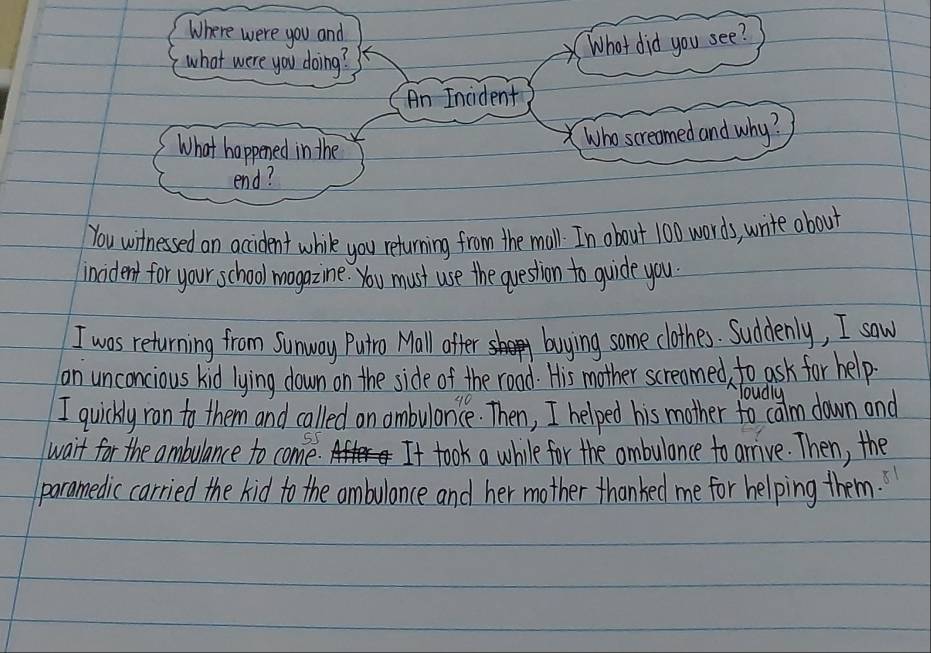 Where were you and
what were you doing?
What did you see?
An Incident
Who screamed and why?
What happened in the
end?
You witnessed an accident while you returning from the mall. In about 100 words, write about
incident for your school magazine. You must use the question to guide you.
I was returning from Sunway Putra Mall after shopp buying some clothes. Suddenly, I saw
an unconcious kid lying down on the side of the road. His mother screamed to ask for help.
loudly
40
I quickly ran to them and called an ambulance. Then, I helped his mother to calm down and
55
wait for the ambulance to come. After a It took a while for the ambulance to arrive. Then, the
paramedic carried the kid to the ambulance and her mother thanked me for helping them. 81